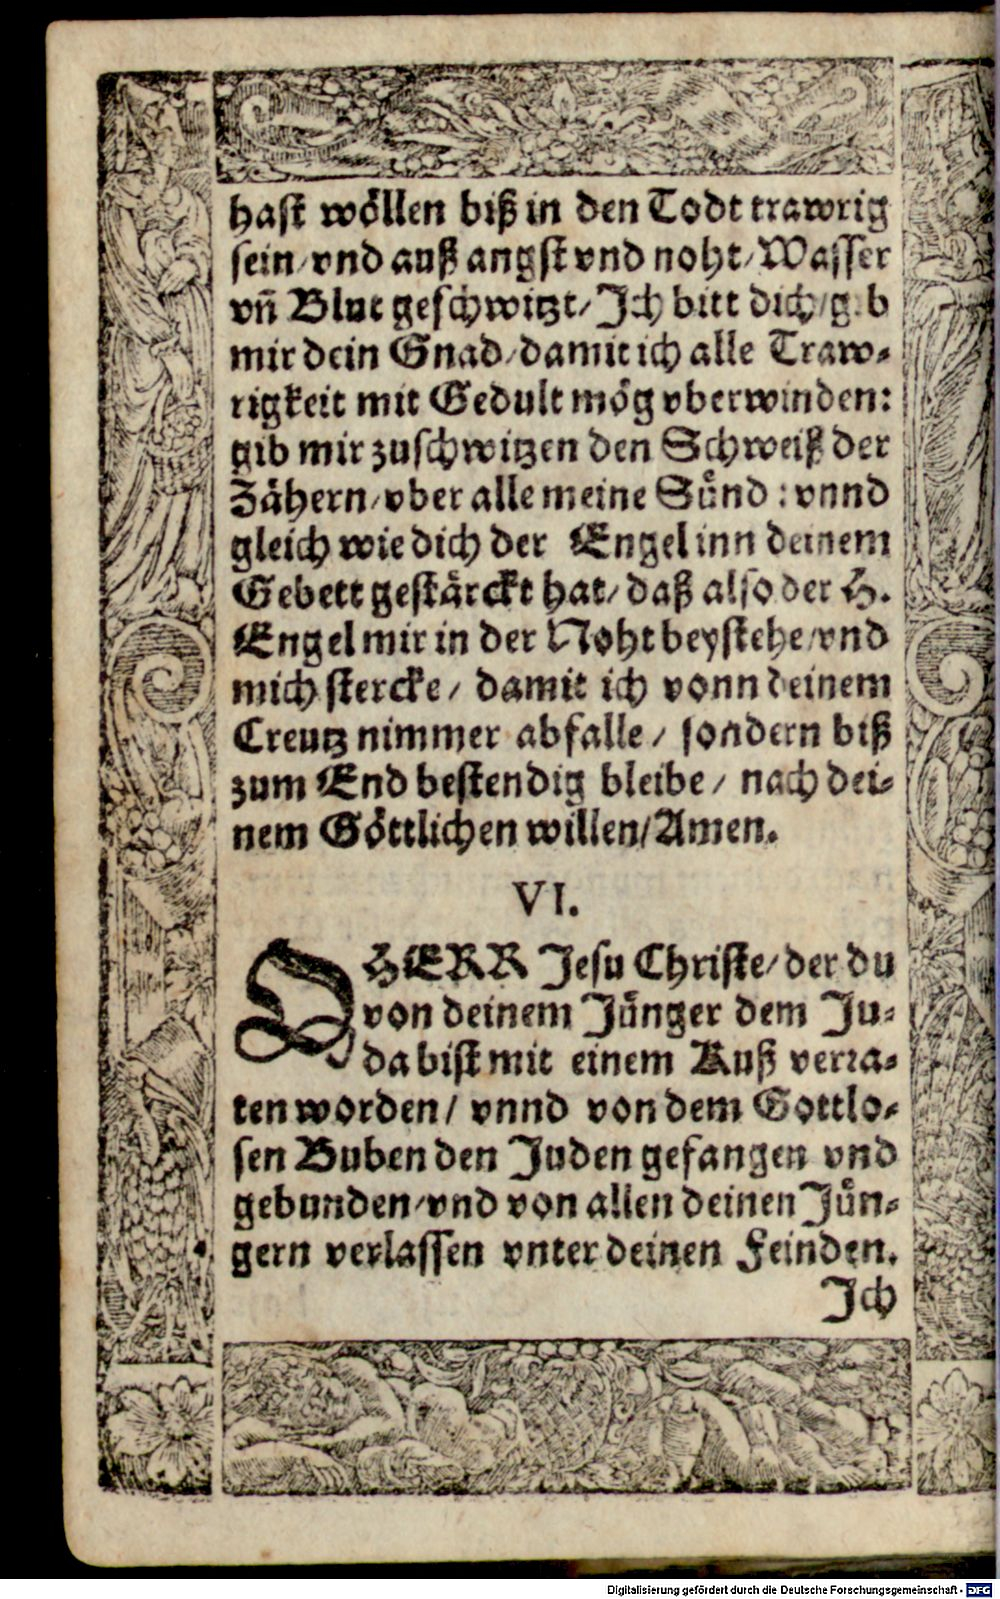 hast wöllen biß in den Todt trawrig
sein/vnd auß angst vnd noht/Wasser
vñ Blut geschwitzt/Jch bitt dich/
mir dein Gnad/damit ich alle Traw-
rigkeit mit Gedult mög vberwinden:
gib mir zuschwitzen den Schweiß der
Zähern/vber alle meine Sünd: vnnd
gleich wie dich der Engel inn deinem
Gebett gestärckt hat/daß also der H.
Engel mir in der Noht beystehe/vnd
mich stercke/ damit ich vonn deinem
Creutz nimmer abfalle/ sondern biß
zum End bestendig bleibe/ nach dei-
nem Göttlichen willen/Amen.
VI.
O HERR Jesu Christe/der du
von deinem Jünger dem Ju-
da bist mit einem Kuß verra-
ten worden/ vnnd von dem Gottlo-
sen Buben den Juden gefangen vnd
gebunden/vnd von allen deinen Jün-
gern verlassen vnter deinen Feinden.
Jch
Digitalisierung gefördert durch die Deutsche Forschungsgemeinschaft - DFG